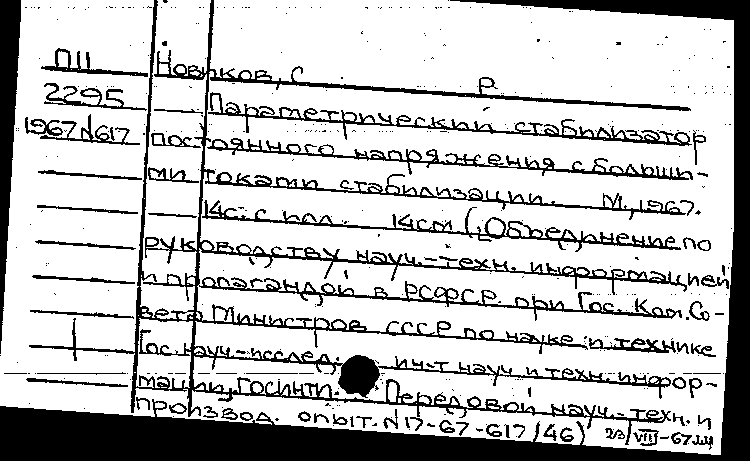 П11
Новиков, С Р.
2295
Параметрический стабилизатор
1967 N617
постоянного напряжения с больши-
ми токами стабилизации. М., 1967.
14с. с илл. 14см ([Объединение по
руководству науч.-техн. информацией
и пропагандой в РСФСР при Гос. Ком. Со-
вета Министров СССР по науке и технике
Гос. науч.-исслед. ин-т науч и техн. инфор-
мации, ГОСИНТИ. Передовой науч.-техн. и
производ. опыт. N17-67-617/46)